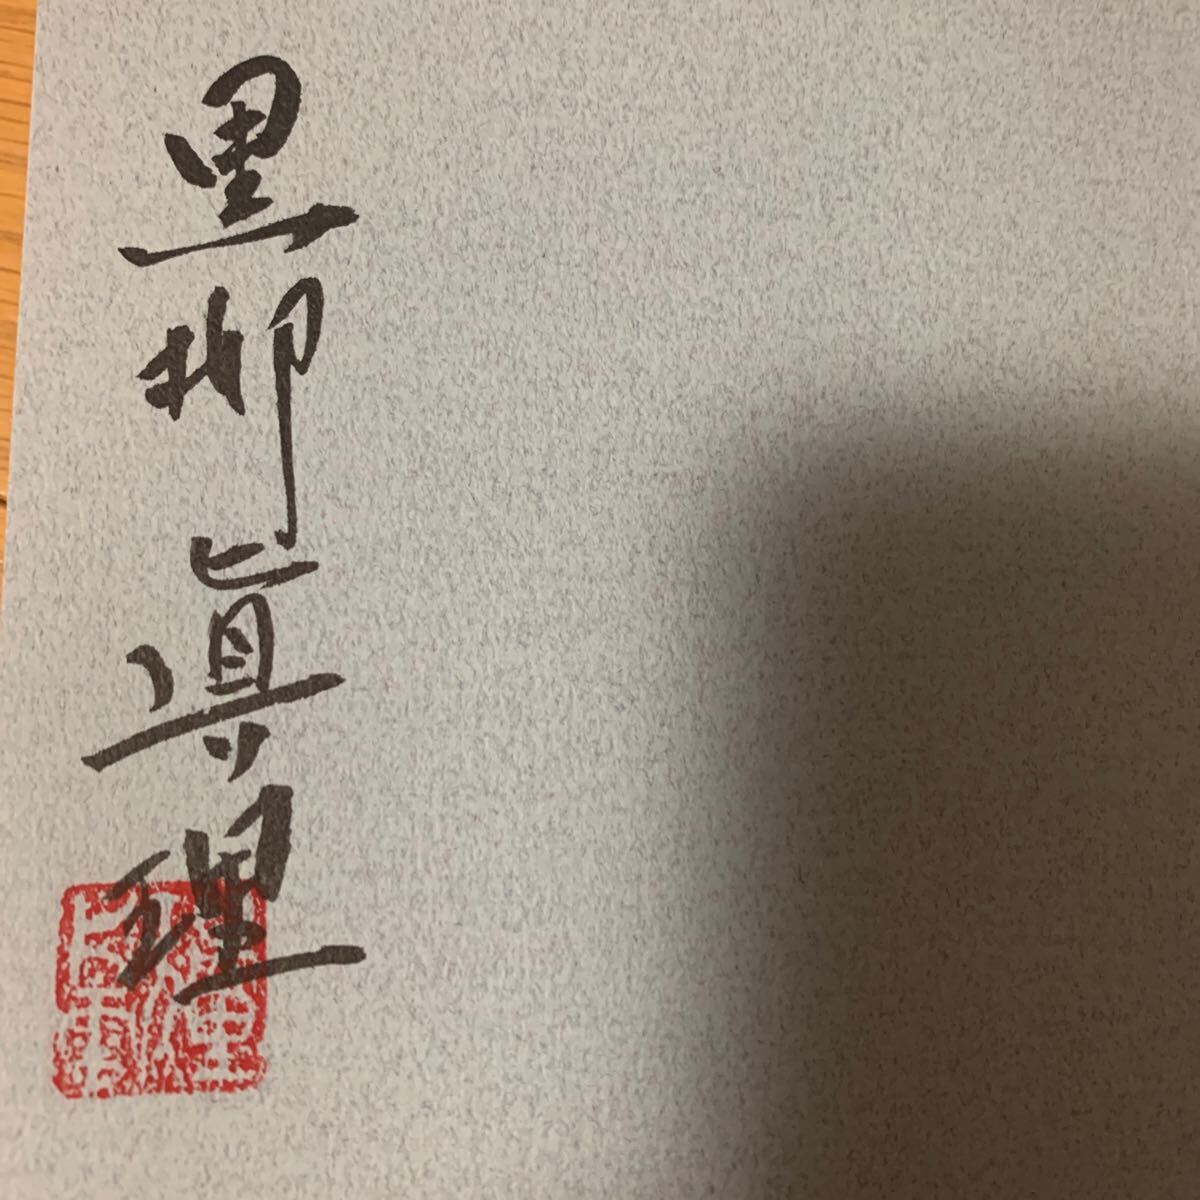 黒柳眞理